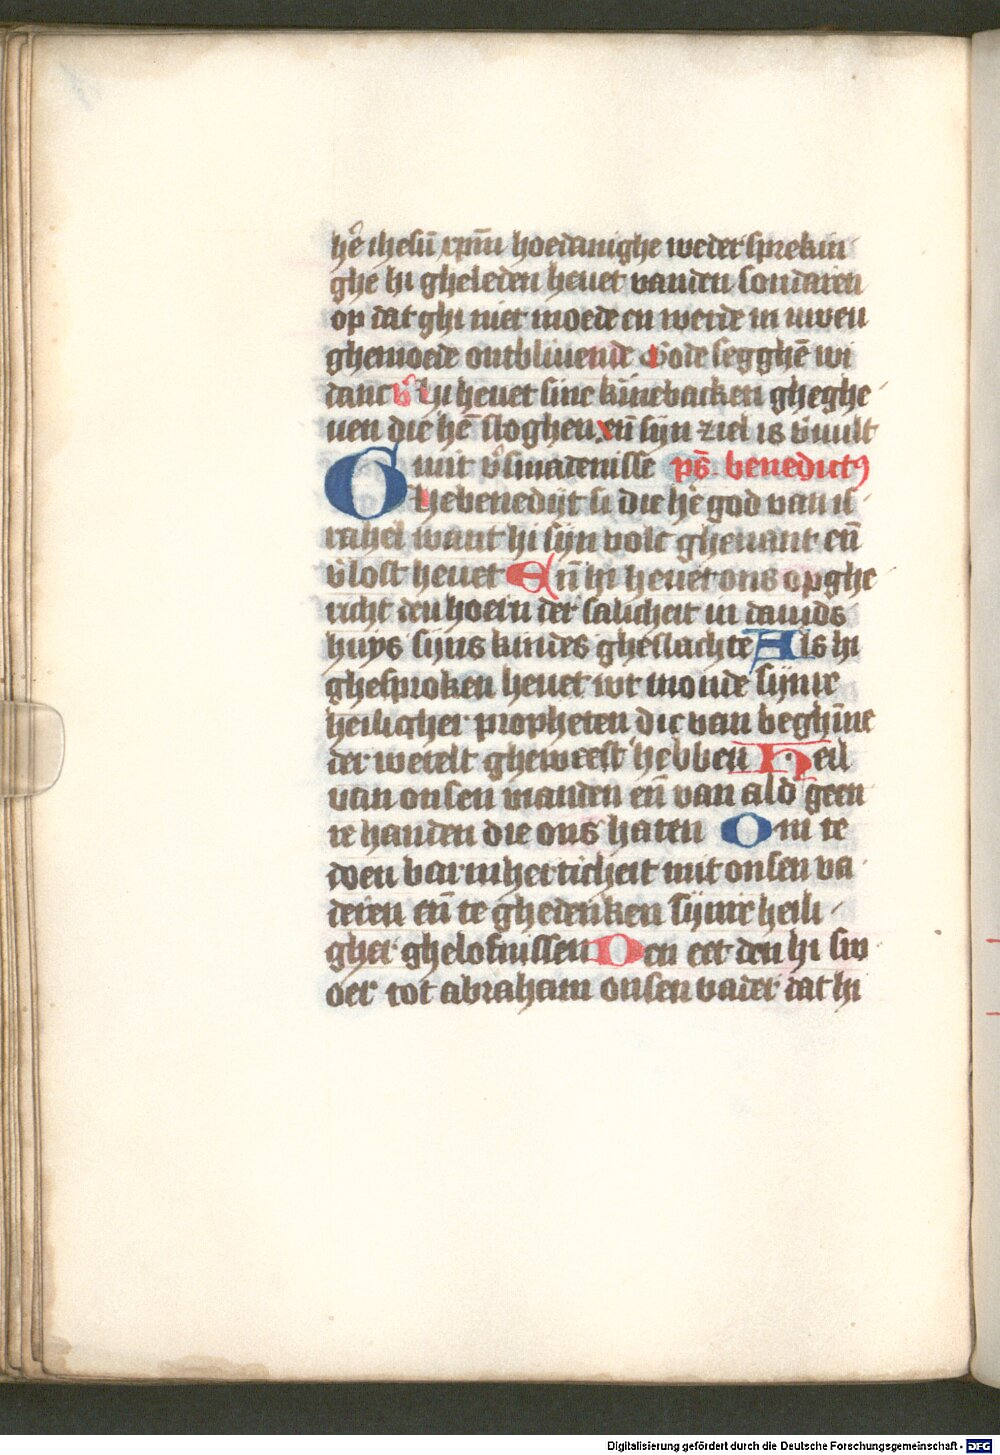 he᷒ ihesū xpm̄ hoedanighe weder sprekin
ghe hi gheleden heuet vanden sondaren
op dat ghi niet moede en werde in uwen
ghemoede ontbliuende Gode segghē wi
danc v᷒ Hi heuet sine kīnebacken gheghe
uen die hē sloghen eñ sijn ziel is v̄uult
mit v̄smadenisse ps̄. benedictꝰ
Ghebenedijt si die hē god van is
rahel want hi sijn volc gheuant eñ
v̄lost heuet Eñ hi heuet ons op ghe
richt den hoern der salicheit in dauids
huys sijns kindes gheslachte Als hi
ghesproken heuet wt monde sijnre
heiligher propheten die van beghīne
der werelt gheweest hebben Heil
van onsen vianden eñ van al dǥeen
re handen die ons haten Om te
doen barmherticheit mit onsen va
deren eñ te ghedenken sijnre heili
gher ghelofnissen Den eet den hi sw
oer tot abraham onsen vader dat hi
Digitalisierung gefördert durch die Deutsche Forschungsgemeinschaft - DFG